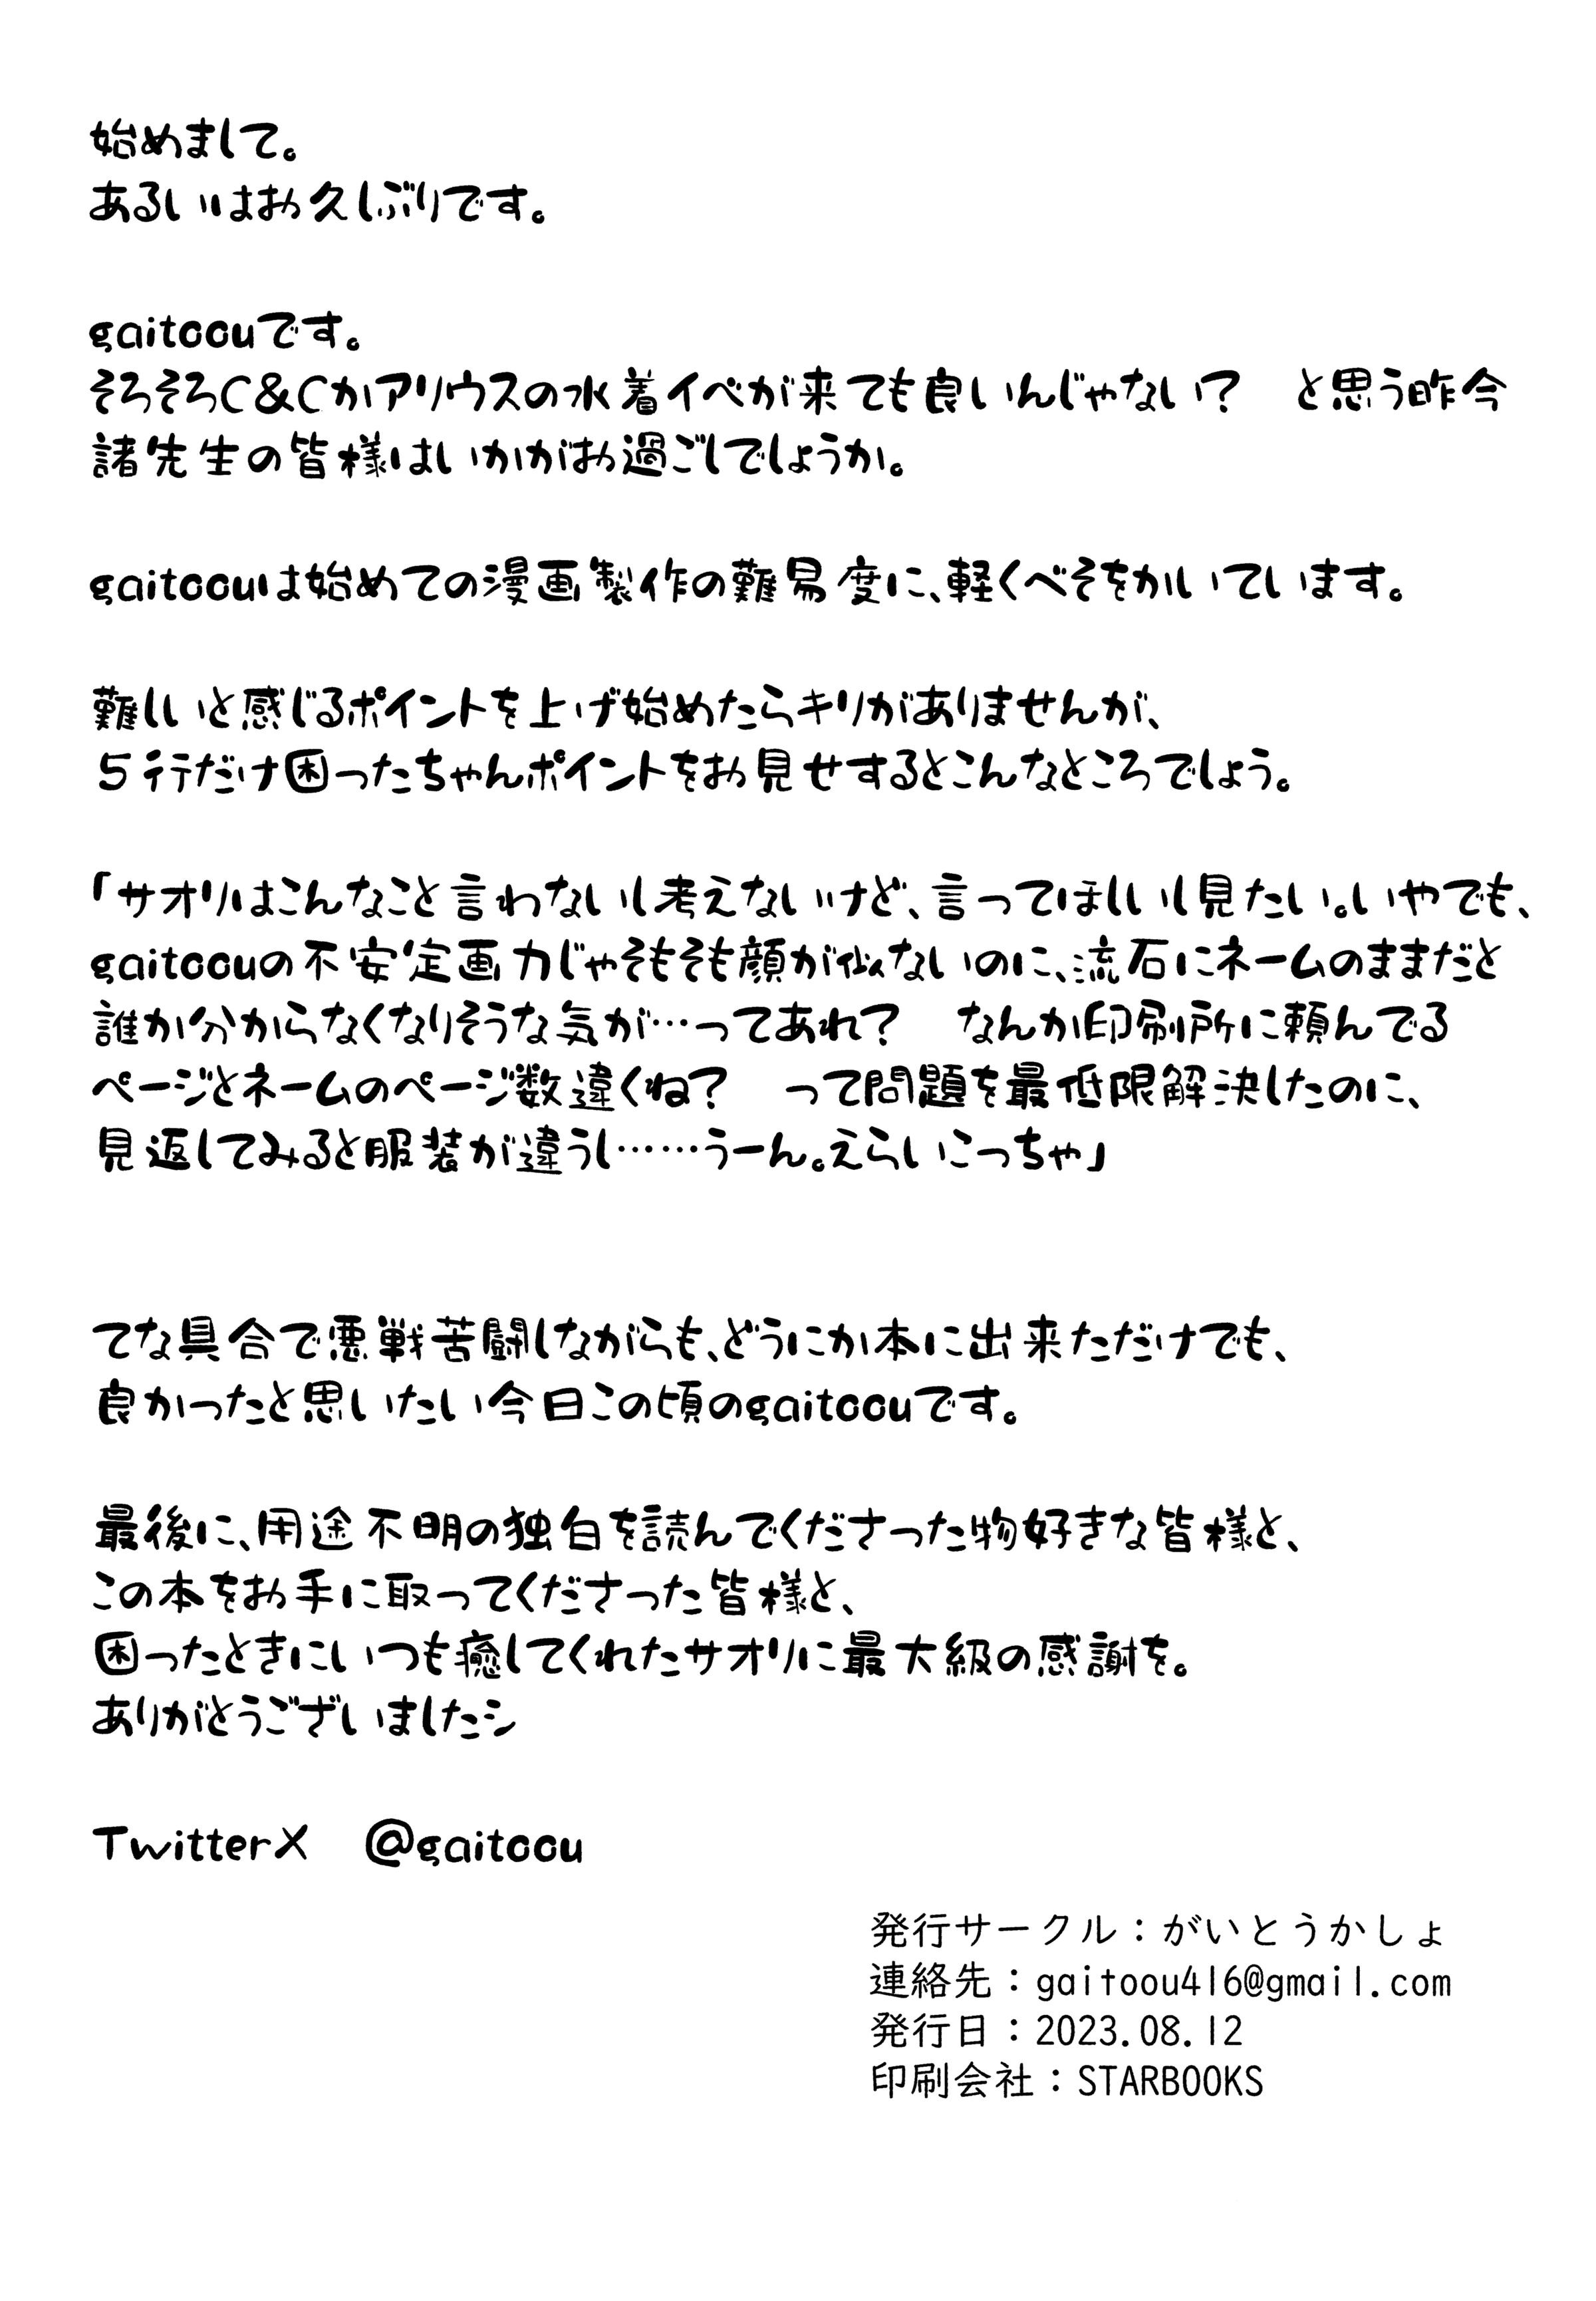 始めまして。
あるいはお久しぶりです。
gaitoouです。
そろそろC&Cかアリウスの水着イベが来ても良いんじゃない?　と思う昨今
諸先生の皆様はいかがお過ごしでしょうか。
gaitoouは始めての漫画製作の難易度に、軽くべそをかいています。
難しいと感じるポイントを上げ始めたらキリがありませんが、
5行だけ困ったちゃんポイントをお見せするとこんなところでしょう。
「サオリはこんなこと言わないし考えないけど、言ってほしいし見たい。いやでも、
gaitoouの不安定画力じゃそもそも顔が似ないのに、流石にネームのままだと
誰か分からなくなりそうな気が…ってあれ?　なんか印刷所に頼んでる
ページとネームのページ数違くね?　って問題を最低限解決したのに、
見返してみると服装が違うし……うーん。えらいこっちゃ」
てな具合で悪戦苦闘しながらも、どうにか本に出来ただけでも、
良かったと思いたい今日この頃のgaitoouです。
最後に、用途不明の独白を読んでくださった物好きな皆様と、
この本をお手に取ってくださった皆様と、
困ったときにいつも癒してくれたサオリに最大級の感謝を。
ありがとうございましたシ
TwitterX　@gaitoou
発行サークル：がいとうかしょ
連絡先：gaitoou416@gmail.com
発行日：2023.08.12
印刷会社：STARBOOKS